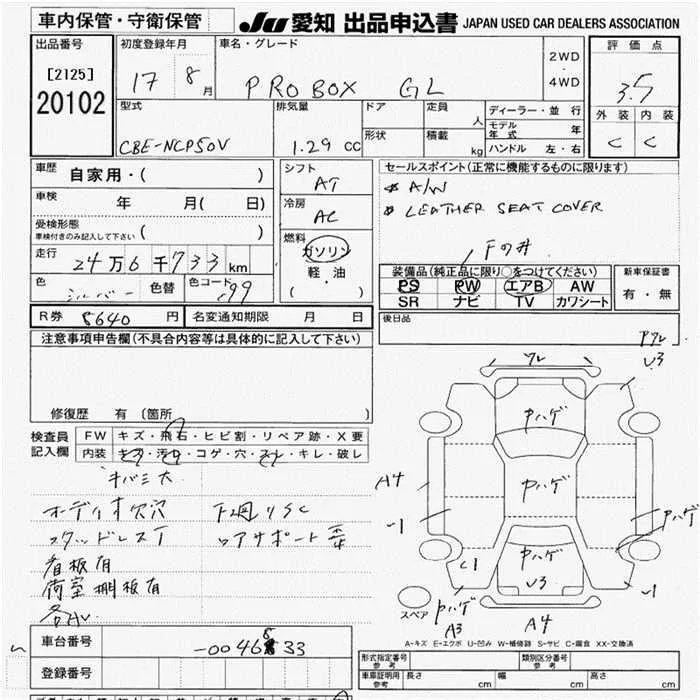 車内保管・守衛保管
JU 愛知 出品申込書 JAPAN USED CAR DEALERS ASSOCIATION
出品番号
[2125]
20102
初度登録年月
17 8月
車名・グレード
PROBOX GL
2WD
・
4WD
評価点
3.5
外装 内装
C C
型式
CBE-NCP50V
排気量
1.29 cc
ドア
形状
定員 人
積載 kg
ディーラー・並行
モデル年式 年
ハンドル 左・右
車歴 自家用・( )
車検 年 月( 日)
受検形態
車検付きのみ記入して下さい ( )
走行 24万6千733km
色 シルバー 色替 色コード 199
シフト
AT
冷房
AC
燃料
ガソリン
軽・油
( )
セールスポイント(正常に機能するものに限ります)
* A/W
* LEATHER SEAT COVER
Fのみ
装備品(純正品に限り○をつけてください)
PS PW エアB AW
SR ナビ TV カワシート
新車保証書
有・無
R券 8640円 名変通知期限 月 日
後日品
注意事項申告欄(不具合内容等は具体的に記入して下さい)
修復歴 有 〔箇所 〕
検査員
記入欄
FW キズ・飛石・ヒビ割・リペア跡・X要
内装 キズ・汚れ・コゲ・穴・スレ・キレ・破レ
キバミ大
オーディオ欠沢 下廻りSC
スタッドレスT ロアサポート歪
看板有
荷室棚板有
各AU
車台番号 -0046833
登録番号
ワレ
Pワレ
U3
Pハゲ
Pハゲ
Pハゲ
U3
A4
-1
C1
Pハゲ
-1
スペア
Pハゲ
A3
A4
A-キズ E-エクボ U-凹み W-補修跡 S-サビ C-腐食 XX-交換済
形式指定番号
参考
類別区分番号
車庫証明用
参考
長さ cm 幅 cm 高さ cm